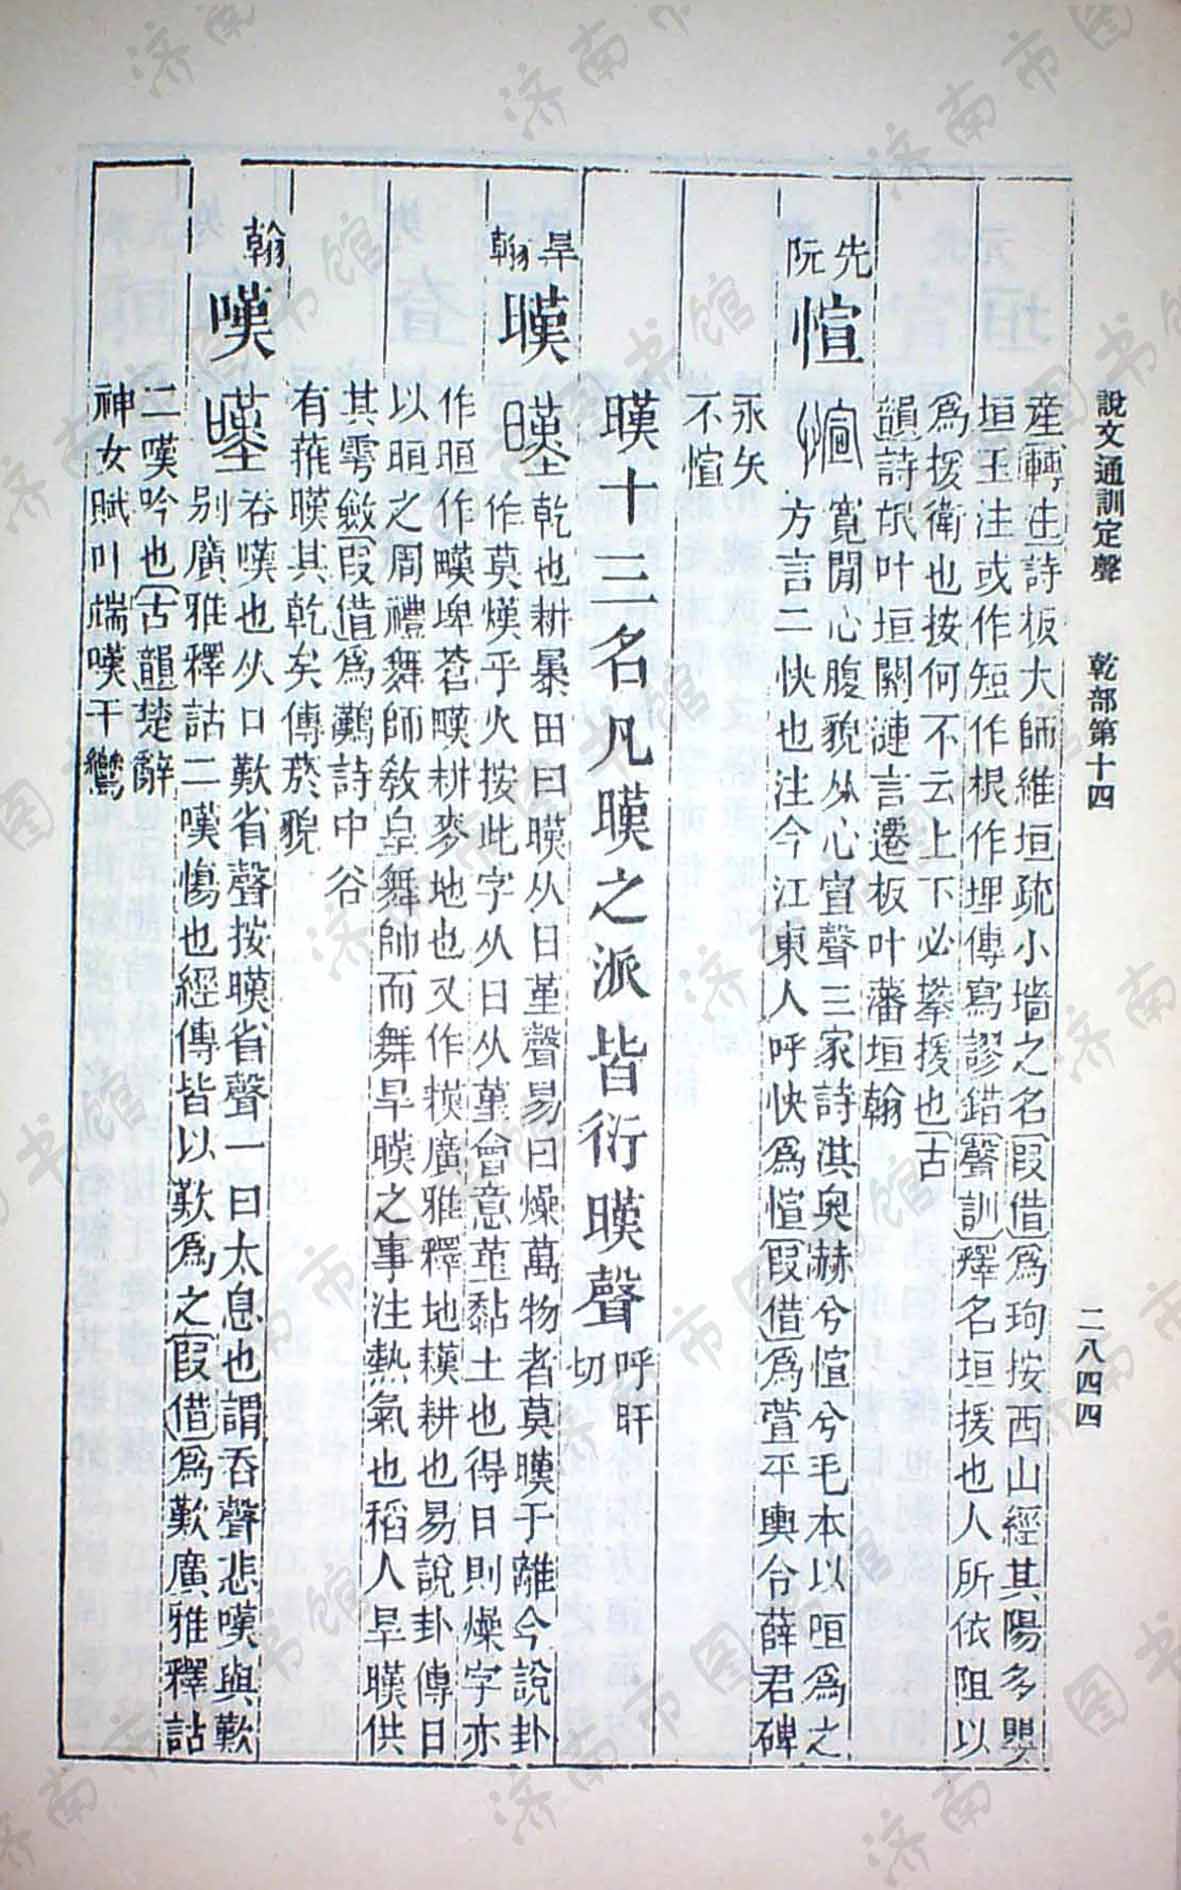 說文通訓定聲 乾部第十四 二八四四
產〔轉注〕詩板大師維垣疏小墻之名〔叚借〕爲珣按西山經其陽多嬰
垣玉注或作短作根作埋傳寫謬錯〔聲訓〕釋名垣援也人所依阻以
爲援衛也按何不云上下必搴援也〔古
韻〕詩氓叶垣關漣言遷板叶藩垣翰
先阮
愃 寬閒心腹貌从心宣聲三家詩淇奥赫兮愃兮毛本以咺爲之
方言二快也注今江東人呼快爲愃〔叚借〕爲萱平輿令薛君碑
永矢
不愃
暵十三名凡暵之派皆衍暵聲 呼旰切
旱翰
暵 乾也耕暴田曰暵从日堇聲易曰燥萬物者莫暵于離今說卦
作莫熯乎火按此字从日从堇會意堇黏土也得日則燥字亦
作晅作埤蒼耕麥地也又作廣雅釋地耕也易說卦傳日
以晅之周禮舞師教皇舞帥而舞旱暵之事注熱氣也稻人旱暵供
其雩斂〔叚借〕爲灘詩中谷
有蓷暵其乾矣傳菸貌
翰
嘆 吞嘆也从口歎省聲按暵省聲一曰太息也謂吞聲悲嘆與歎
別廣雅釋詁二嘆慯也經傳皆以歎爲之〔叚借〕爲歎廣雅釋詁
二嘆吟也〔古韻〕楚辭
神女賦叶端嘆干鸞